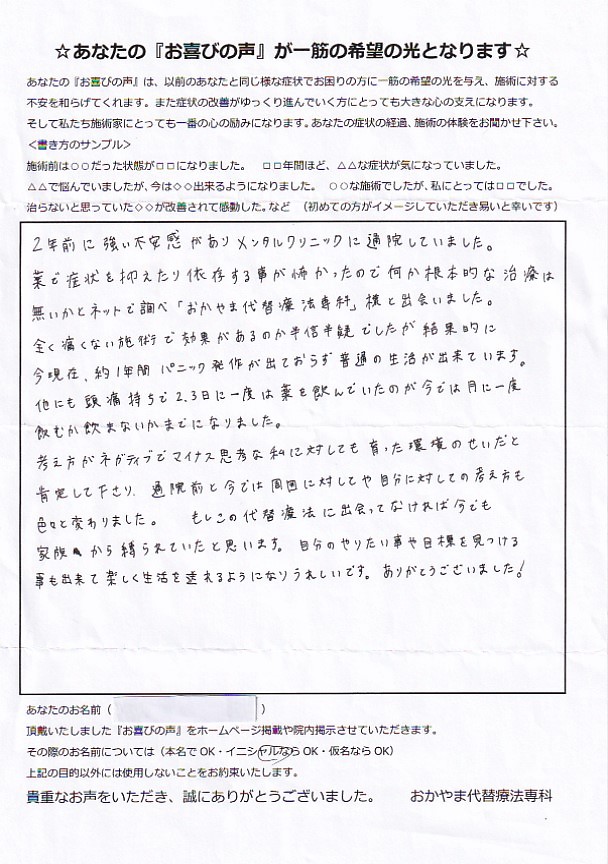 ☆あなたの『お喜びの声』が一筋の希望の光となります☆
あなたの『お喜びの声』は、以前のあなたと同じ様な症状でお困りの方に一筋の希望の光を与え、施術に対する
不安を和らげてくれます。また症状の改善がゆっくり進んでいく方にとっても大きな心の支えになります。
そして私たち施術家にとっても一番の心の励みになります。あなたの症状の経過、施術の体験をお聞かせ下さい。
＜書き方のサンプル＞
施術前は○○だった状態が□□になりました。　□□年間ほど、△△な症状が気になっていました。
△△で悩んでいましたが、今は◇◇出来るようになりました。　○○な施術でしたが、私にとっては□□でした。
治らないと思っていた◇◇が改善されて感動した。など　（初めての方がイメージしていただき易いと幸いです）
2年前に強い不安感がありメンタルクリニックに通院していました。
薬で症状を抑えたり依存する事が怖かったので何か根本的な治療は
無いかとネットで調べ「おかやま代替療法専科」様と出会いました。
全く痛くない施術で効果があるのか半信半疑でしたが結果的に
今現在、約1年間パニック発作が出ておらず普通の生活が出来ています。
他にも頭痛持ちで2.3日に一度は薬を飲んでいたのが今では月に一度
飲むか飲まないかまでになりました。
考え方がネガティブでマイナス思考な私に対しても育った環境のせいだと
肯定して下さり、通院前と今では周囲に対してや自分に対しての考え方も
色々と変わりました。　もしこの代替療法に出会ってなければ今でも
家族から縛られていたと思います。自分のやりたい事や目標を見つける
事も出来て楽しく生活を送れるようになりうれしいです。ありがとうございました！
あなたのお名前（　　　　　　　　）
頂戴いたしました『お喜びの声』をホームページ掲載や院内掲示させていただきます。
その際のお名前については（本名でOK・イニシャルならOK・仮名ならOK）
上記の目的以外には使用しないことをお約束いたします。
貴重なお声をいただき、誠にありがとうございました。　　おかやま代替療法専科